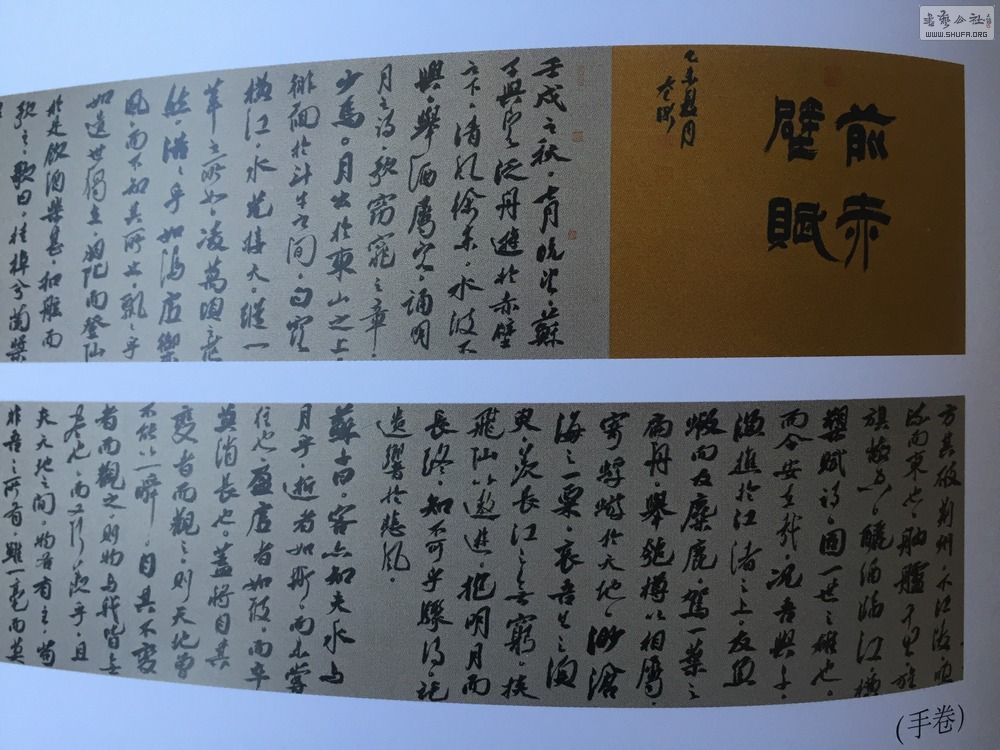 書藝公社
WWW.SHUFA.ORG
前赤
壁賦
壬戌之秋。七月既望。蘇
子與客泛舟遊於赤壁
之下。清風徐來。水波不
興。舉酒屬客。誦明
月之詩。歌窈窕之章。
少焉。月出於東山之上。
徘徊於斗牛之間。白露
橫江。水光接天。縱一
葦之所如。凌萬頃之茫
然。浩浩乎如馮虛禦
風。而不知其所止。飄飄乎
如遺世獨立。羽化而登仙
於是飲酒樂甚。扣舷而
歌之。歌曰。桂棹兮蘭槳
方其破荊州。下江陵。順
流而東也。舳艫千里。旌
旗蔽空。釃酒臨江。橫
槊賦詩。固一世之雄也。
而今安在哉。況吾與子。
漁樵於江渚之上。友魚
蝦而友麋鹿。駕一葉之
扁舟。舉匏樽以相屬。
寄蜉蝣於天地。渺滄
海之一粟。哀吾生之須
臾。羨長江之無窮。挾
飛仙以遨遊。抱明月而
長終。知不可乎驟得。託
遺響於悲風。
蘇子曰。客亦知夫水與
月乎。逝者如斯。而未嘗
往也。盈虛者如彼。而卒
莫消長也。蓋將自其
變者而觀之。則天地曾
不能以一瞬。自其不變
者而觀之。則物與我皆無
盡也。而又何羨乎。且
夫天地之間。物各有主。苟
非吾之所有。雖一毫而莫
(手卷)